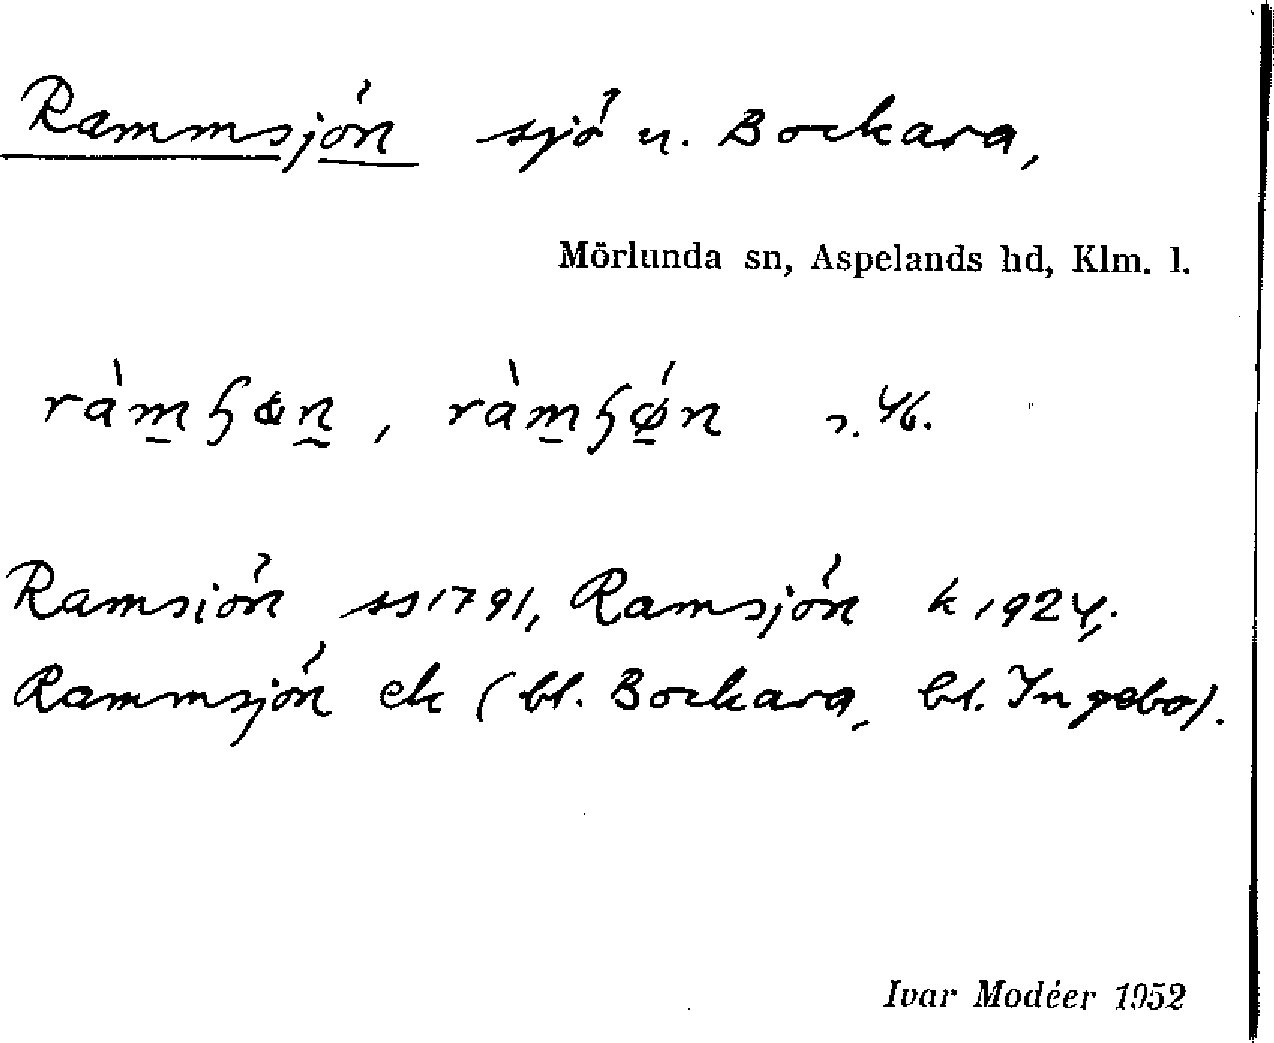 Rammsjön sjö u. Bockara,
Mörlunda sn, Aspelands hd, Klm. l.
Ramsiön ss 1791, Ramsjön k 1924;
Rammsjön ek (bl. Bockara, bl. Ingebo).
Ivar Modéer 1952